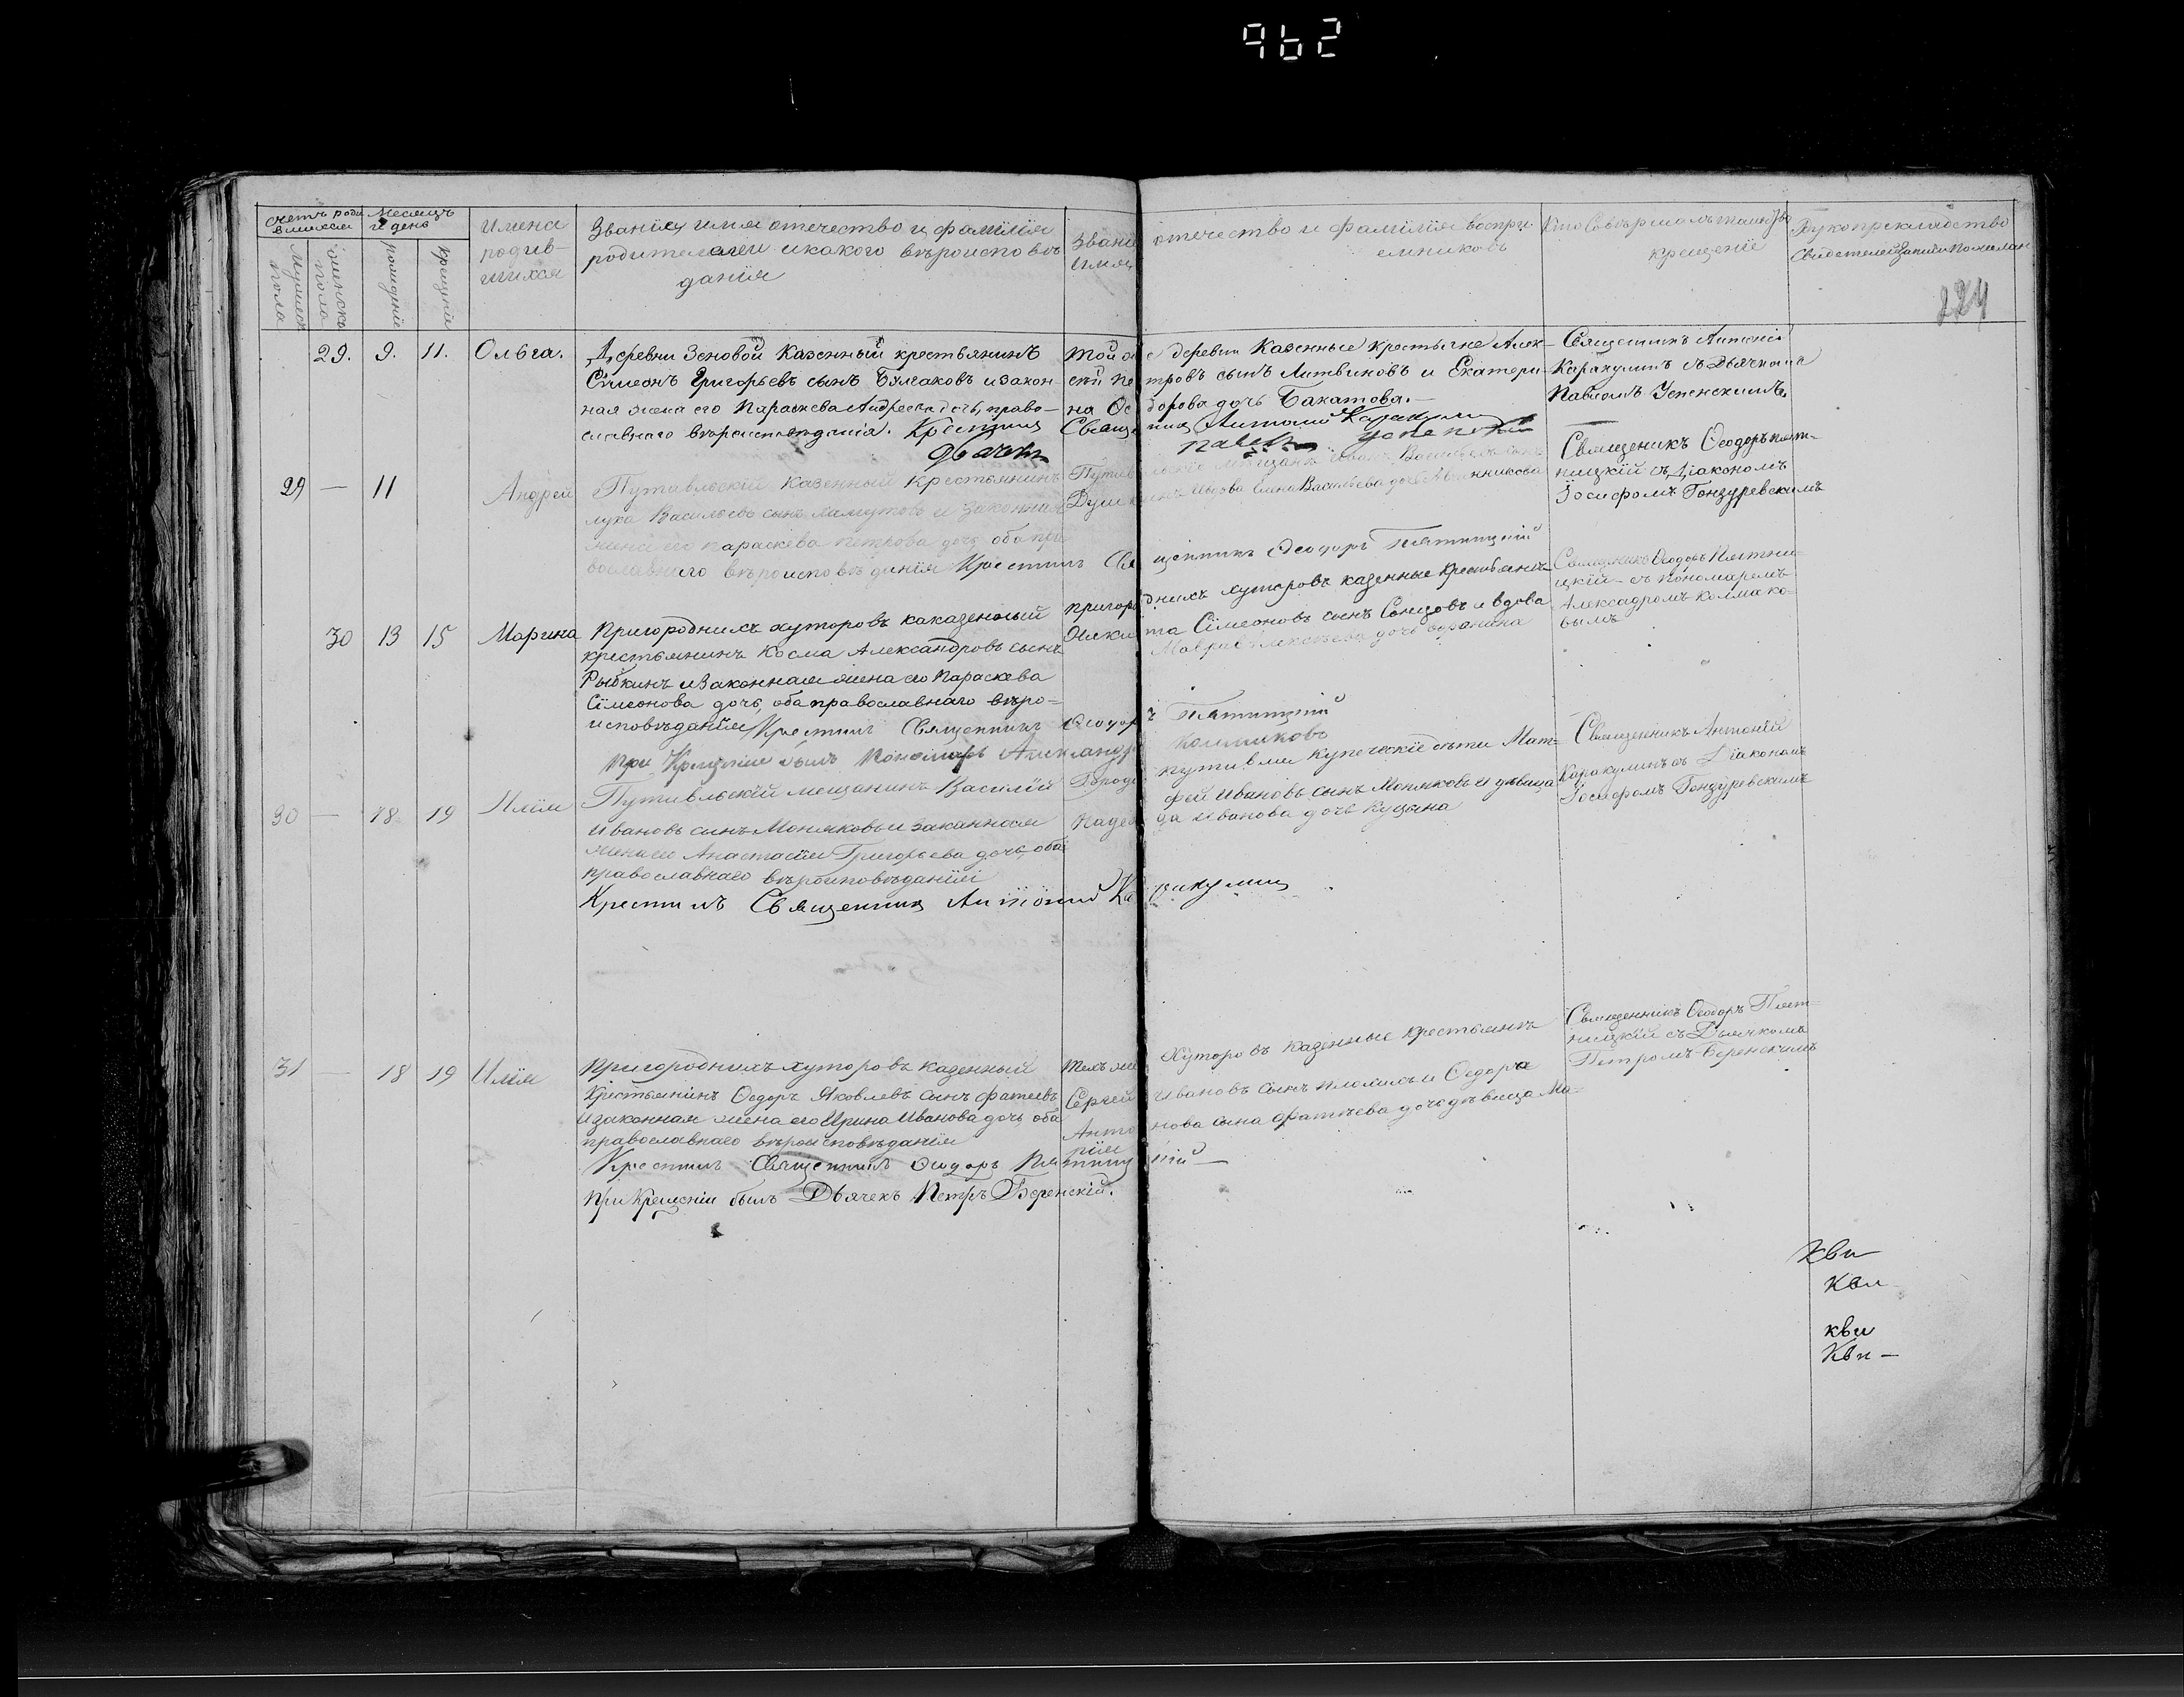 962
счетъ роди
вшихся
Месяцъ
и день
мужеск
пола
женскъ
пола
рожденіе
крещенія
Имена
родив-
шихся
Званіе, имя отечество и фамилія
родителей и какого вѣроисповѣ
данія
Звані
Имя
отечество и фамилія воспри-
емниковъ
Кто Совѣршалъ таинство
крещеніе
Рукоприкладство
Свидетелей Записи по желан
224
29. 9. 11. Ольга.
Деревни Зеновой Казенный крестьянинъ
Сімеонъ Григорьевъ сынъ и закон-
ная жена его Параскева Андреева дочь, право-
славнаго вѣроисповѣданія. Крестилъ
Дьячекъ
Той ж
сѣй Пе
на Ѳе
Свяще
е деревни Казенные крестьяне Алек-
тровъ сынъ Литвиновъ и Екатери-
дорова дочь Бакатова.
никъ Антоній Каракулинъ
Павелъ Успенскій
Священникъ Антоній
Каракулинъ съ Дьячкомъ
Павломъ Успенскимъ.
29 — 11 Андрей
Путивльскій Казенный Крестьянинъ
Лука Васильевъ сынъ и законная
жена его Параскева Петрова дочь оба пра-
вославнаго вѣроисповѣданія Крестилъ Свя
Путив
Душк
льскіе мещане Иванъ Васильевъ сынъ
инъ и вдова Елена Васильева дочь
щенникъ Ѳеодоръ Пятницкій
Священикъ Ѳеодоръ Пят-
ницкій съ Діакономъ
Іосифомъ Гонзуревскимъ
30 13 15 Марина
Пригороднихъ хуторовъ каказенный
крестьянинъ Косма Александровъ сынъ
Рыбкинъ и Законная жена его Параскева
Сімеонова дочь, оба православнаго вѣро-
исповѣданія Крестилъ Священникъ Ѳеодор
При Крещеніи былъ Пономарь Александр
Пригоро
Ники
днихъ хуторовъ казенные Крестьяне
та Сімеоновъ сынъ и вдова
Мавра Алексѣева дочь
ъ Пятницкій
Колмаковъ
Священикъ Ѳеодоръ Пятни-
цкій съ пономаремъ
Алексадромъ Колмако-
вымъ
30 — 18 19 Илія
Путивльскій мещанинъ Василій
Ивановъ сынъ Моняковъ и законная
жена его Анастасія Григорьева дочь, оба
православнаго вѣроисповѣданія
Крестилъ Священникъ Антоній Ка
Города
Надеж
Путивля купеческіе дѣти Мат-
фей Ивановъ сынъ Моняковъ и дѣвица
да Иванова дочь Куцына
ракулинъ
Священникъ Антоній
Каракулинъ съ Діакономъ
Іосифомъ Гонзуревскимъ
31 — 18 19 Илія
Пригороднихъ хуторовъ казенный
Крестьянинъ Ѳедоръ Яковлевъ сынъ Фатеевъ
и законная жена его Ирина Иванова дочь оба
православнаго вѣроисповѣданія
Крестилъ Священникъ Ѳеодоръ Пятниц
При Крещеніи былъ Дьячекъ Петръ Беренскій.
Техъ же
Сергей
Анто
нія
Хуторовъ казенные Крестьяне
Ивановъ сынъ и Ѳедора
нова сына Фатѣева дочь дѣвица Ма-
кій —
Священникъ Ѳеодоръ Пят-
ницкій съ Дьячкомъ
Петромъ Беренскимъ